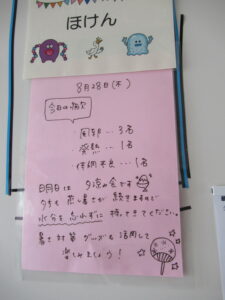 ほけん
8月28日(木)
今日の病欠
・風邪…3名
・発熱…1名
・体調不良…1名
明日は 夕涼み会です
夕方も蒸し暑さが続きますので
水分を忘れずに持ってきてください。
暑さ対策グッズも活用して
楽しみましょう！